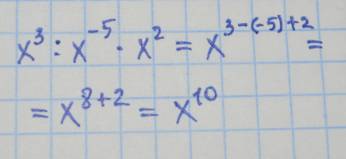 x³ : x⁻⁵ · x² = x³⁻⁽⁻⁵⁾⁺² =
= x⁸⁺² = x¹⁰